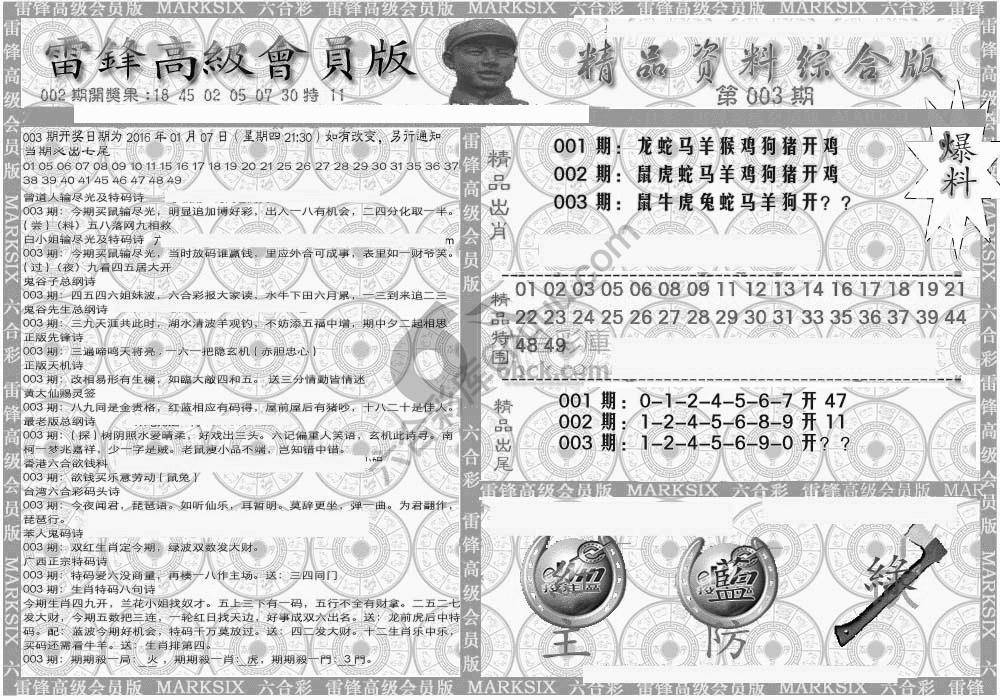 雷锋高级会员版 MARKSIX 六合彩 雷锋高级会员版 MARKSIX 六合彩 雷锋高级会员版 MARKSIX 六合彩 雷锋高级会员版
雷鋒高級會員版
精品资料综合版
002期開獎果:18 45 02 05 07 30 特 11
第 003 期
003 期开奖日期为 2016 年 01 月 07 日 ( 星期四 21:30 ) 如有改变, 另行通知
当期必出七尾
01 05 06 07 08 09 10 11 15 16 17 18 19 20 21 25 26 27 28 29 30 31 35 36 37
38 39 40 41 45 46 47 48 49
曾道人输尽光及特码诗
003 期: 今期买鼠输尽光, 明显追加博好彩, 出入一八有机会, 二四分化取一半。
{ 尝 } (料) 五八落网九相救
白小姐输尽光及特码诗
003 期: 今期买鼠输尽光, 当时放码谁赢钱, 里应外合可成事, 表里如一财爷笑。
{ 过 } (夜) 九看四五居大开
鬼谷子总纲诗
003 期: 四五四六姐妹波, 六合彩报大家读, 水牛下田六月累, 一三到来追二三
鬼谷先生总纲诗
003 期: 三九天涯共此时, 湖水清波羊观钓, 不妨添五福中增, 期中夕二起相思
正版先锋诗
003 期: 三遍啼鸣天将亮, 一六一把隐玄机 { 赤胆忠心 }
正版天机诗
003 期: 改相易形有生機, 如臨大敵四和五。 送三分情勤皆情迷
黄大仙赐灵签
003 期: 八九同是金贵格, 红蓝相应有码得, 屋前屋后有猪吵, 十八二十是佳人。
最老版总纲诗
003 期: { 探 } 树阴照水爱晴柔, 好戏出三头。六记偏重人笑语, 玄机此诗寻。南
柯一梦兆嘉祥, 少一字是贼。老鼠溲小品不端, 岂知错中错。
香港六合欲钱料
003 期: 欲钱买乐意劳动 { 鼠兔 }
台湾六合彩码头诗
003 期: 今夜闻君, 琵琶语。如听仙乐, 耳暂明。莫辞更坐, 弹一曲。为君翻作,
琵琶行。
苯人鬼码诗
003 期: 双红生肖定今期, 绿波双数发大财。
广西正宗特码诗
003 期: 特码爱六没商量, 再楼一八作主场。送: 三四同门
003 期: 生肖特码八句诗
今期生肖四九开, 兰花小姐找奴才。五上三下有一码, 五行不全有财拿。二五二七
发大财, 今期五数把三连, 一轮红日找天边, 好事成双六出名。送: 龙前虎后中特
码。配: 蓝波今期好机会, 特码千万莫放过。送: 四二发大财。十二生肖乐中乐,
买码还需看牛羊。送: 生肖排第四。
003 期: 期期殺一局: 火 , 期期殺一肖: 虎, 期期殺一門: 3 門。
精品出肖
001 期: 龙蛇马羊猴鸡狗猪开鸡
002 期: 鼠虎蛇马羊鸡狗猪开鸡
003 期: 鼠牛虎兔蛇马羊狗开? ?
爆料
精品特围
01 02 03 05 06 08 09 11 12 13 14 16 17 18 19 21
22 23 24 25 26 27 28 29 30 31 33 35 36 37 39 44
48 49
精品出尾
001 期: 0-1-2-4-5-6-7 开 47
002 期: 1-2-4-5-6-8-9 开 11
003 期: 1-2-4-5-6-9-0 开? ?
雷锋高级会员版 MARKSIX 六合彩 雷锋高级会员版 MARKSIX
主
藍
防
綠
雷锋高级会员版 MARKSIX 六合彩 雷锋高级会员版 MARKSIX 六合彩 雷锋高级会员版 MARKSIX 六合彩 雷锋